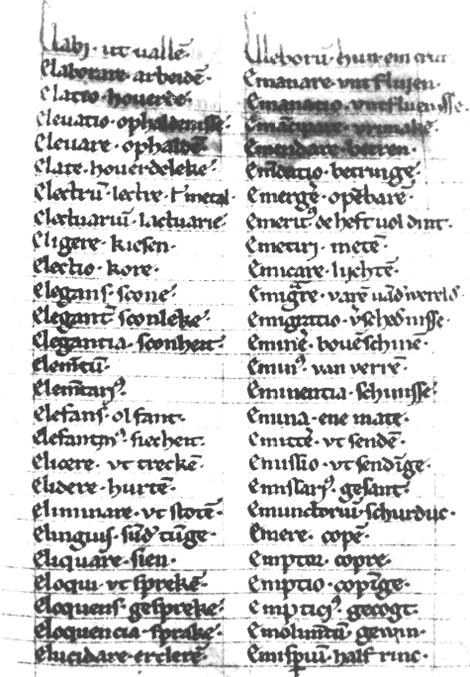 Elabi · ut uallē ·
Elaborare · arbeidē ·
Elatio · houerde ·
Eleuatio · ophaldenisse ·
Eleuare · ophaldē ·
Elate · houerdeleke ·
Electrū · lectre · metal ·
Electuariū · lactuarie ·
Eligere · kiesen ·
Electio · kore ·
Elegans · scone ·
Elegant᷑ · sconleke ·
Elegantia · sconheit ·
Elem̄tū ·
Elem̄tariꝰ ·
Elefans · olfant ·
Elicere · vt treckē ·
Elidere · hurtē ·
Eliminare · vt stotē ·
Elinguis · sūd᷑ tūge ·
Eliquare · sien ·
Eloqui · vt sprekē ·
Eloquens · gespreke ·
Eloquencia · sprake ·
Elucidare · erclerē ·
Elleborū ·
Emanare · vutfluꝫen ·
Emanatio · vutfluenisse ·
Emācipare · vrimakē ·
Emendare · beteren ·
Em̄datio · betringe ·
Emerge᷑ · opēbare ·
Emeritꝰ ·
Emetiri · metē ·
Emicare · lijchtē ·
Emigre᷑ · varē
Emigratio · v᷑schednisse ·
Emine᷑ · bouēschine ·
Eminꝰ · van verrē ·
Eminentia · schinisse ·
Emina · ene mate ·
Emitte᷑ · vt sendē ·
Emissio · vt sendīge ·
Emissariꝰ · gesant ·
Emunctoriū · schurduc ·
Emere · copē ·
Emptor · copre ·
Emptio · copīge ·
Empticiꝰ · gecogt ·
Emolumētū · gewin ·
Emispiū · half rinc ·